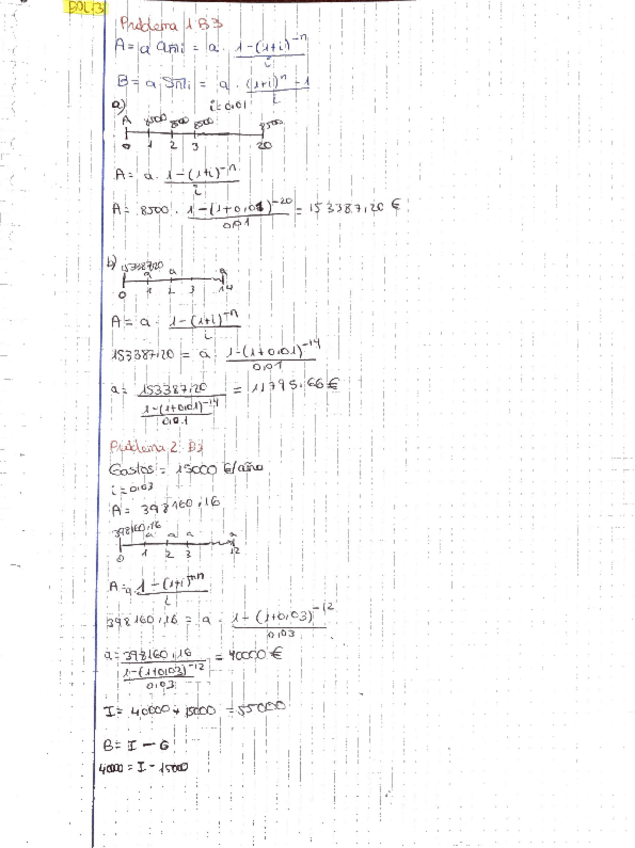 BOL.3
Problema 1 B3
A = a a̅n̅|i = a · 1-(1+i)^-n / i
B = a S̅n̅|i = a · (1+i)^n - 1 / i
a) i=0,01
A 8500 8500 8500 8500
0 1 2 3 20
A = a · 1-(1+i)^-n / i
A = 8500 · 1-(1+0,01)^-20 / 0,01 = 153387,20 €
b) 153387,20 a a a
0 1 2 3 14
A = a · 1-(1+i)^-n / i
153387,20 = a · 1-(1+0,01)^-14 / 0,01
a = 153387,20 / (1-(1+0,01)^-14 / 0,01) = 11795,66 €
Problema 2 B3
Gastos = 15000 €/año
i = 0,03
A = 398160,16
398160,16 a a a a
0 1 2 3 12
A = a · 1-(1+i)^-n / i
398160,16 = a · 1-(1+0,03)^-12 / 0,03
a = 398160,16 / (1-(1+0,03)^-12 / 0,03) = 40000 €
I = 40000 + 15000 = 55000
B = I - G
40000 = I - 15000